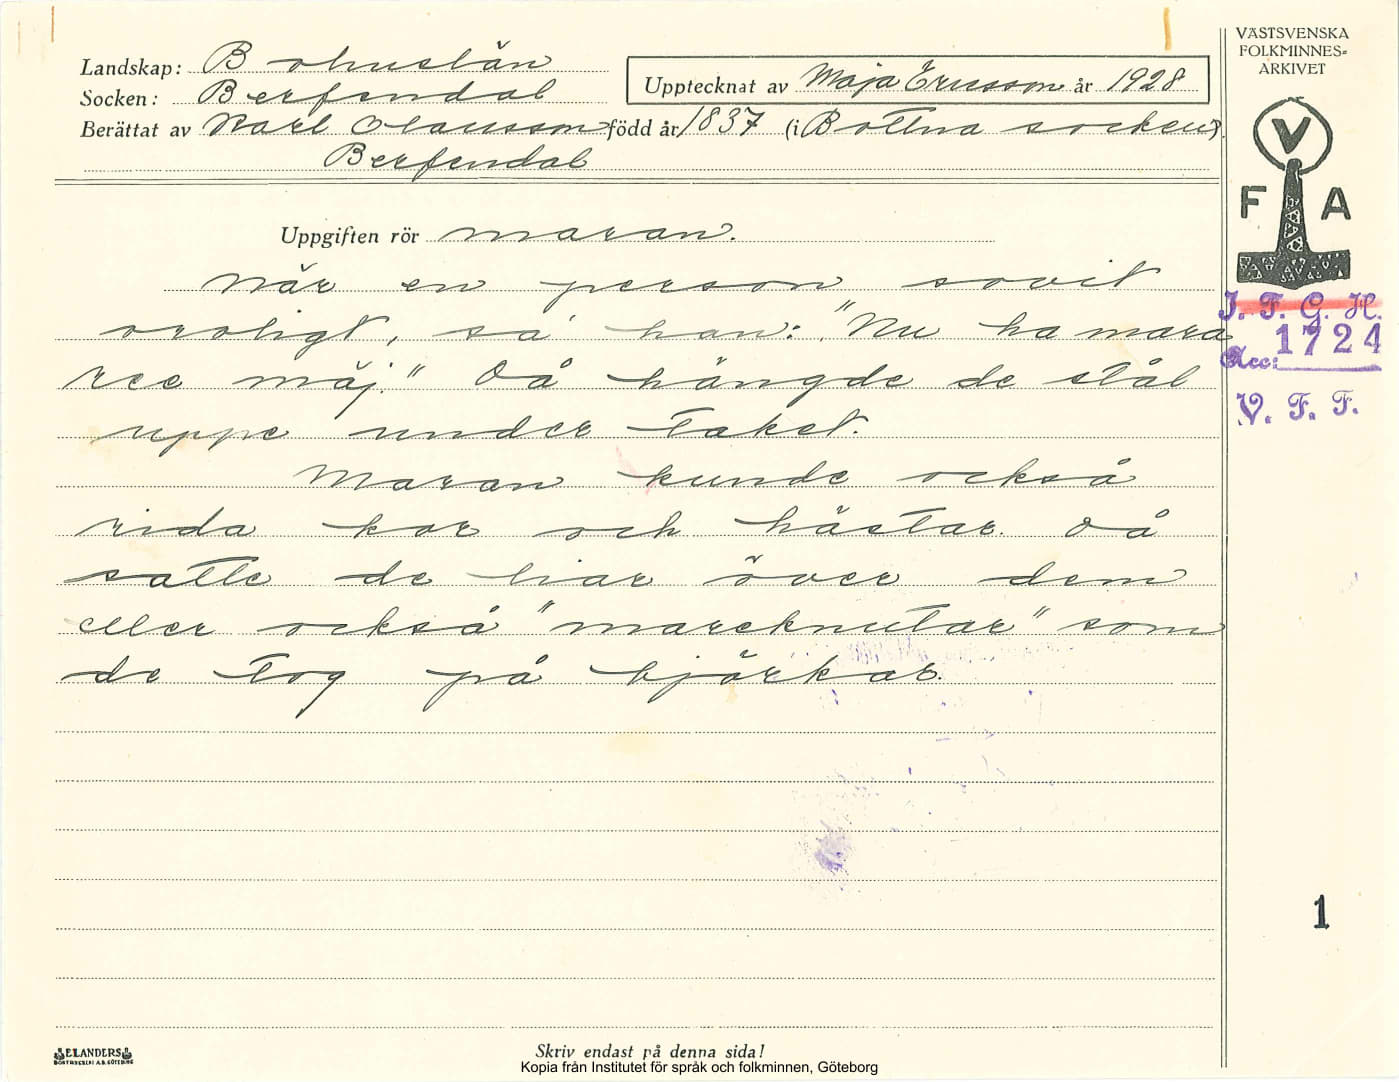 Landskap: Bohuslän
Socken: Berfendal
Upptecknat av Maja Ericsson år 1928
Berättat av Karl Olausson född år 1837 (i Bottna socken).
Berfendal
VÄSTSVENSKA
FOLKMINNES=
ARKIVET
V
F A
Uppgiften rör maran.
När en person sovit
oroligt, sa han: "Nu ha mara
ree mäj." Då hängde de stål
uppe under taket.
Maran kunde också
rida kor och hästar. Då
satte de liar över dem
eller också "mareknutar" som
de tog på björkar.
I. F. G. H.
Acc: 1724
V. F. F.
1
ELANDERS
BOKTRYCKERI A.B. GÖTEBORG
Skriv endast på denna sida!
Kopia från Institutet för språk och folkminnen, Göteborg